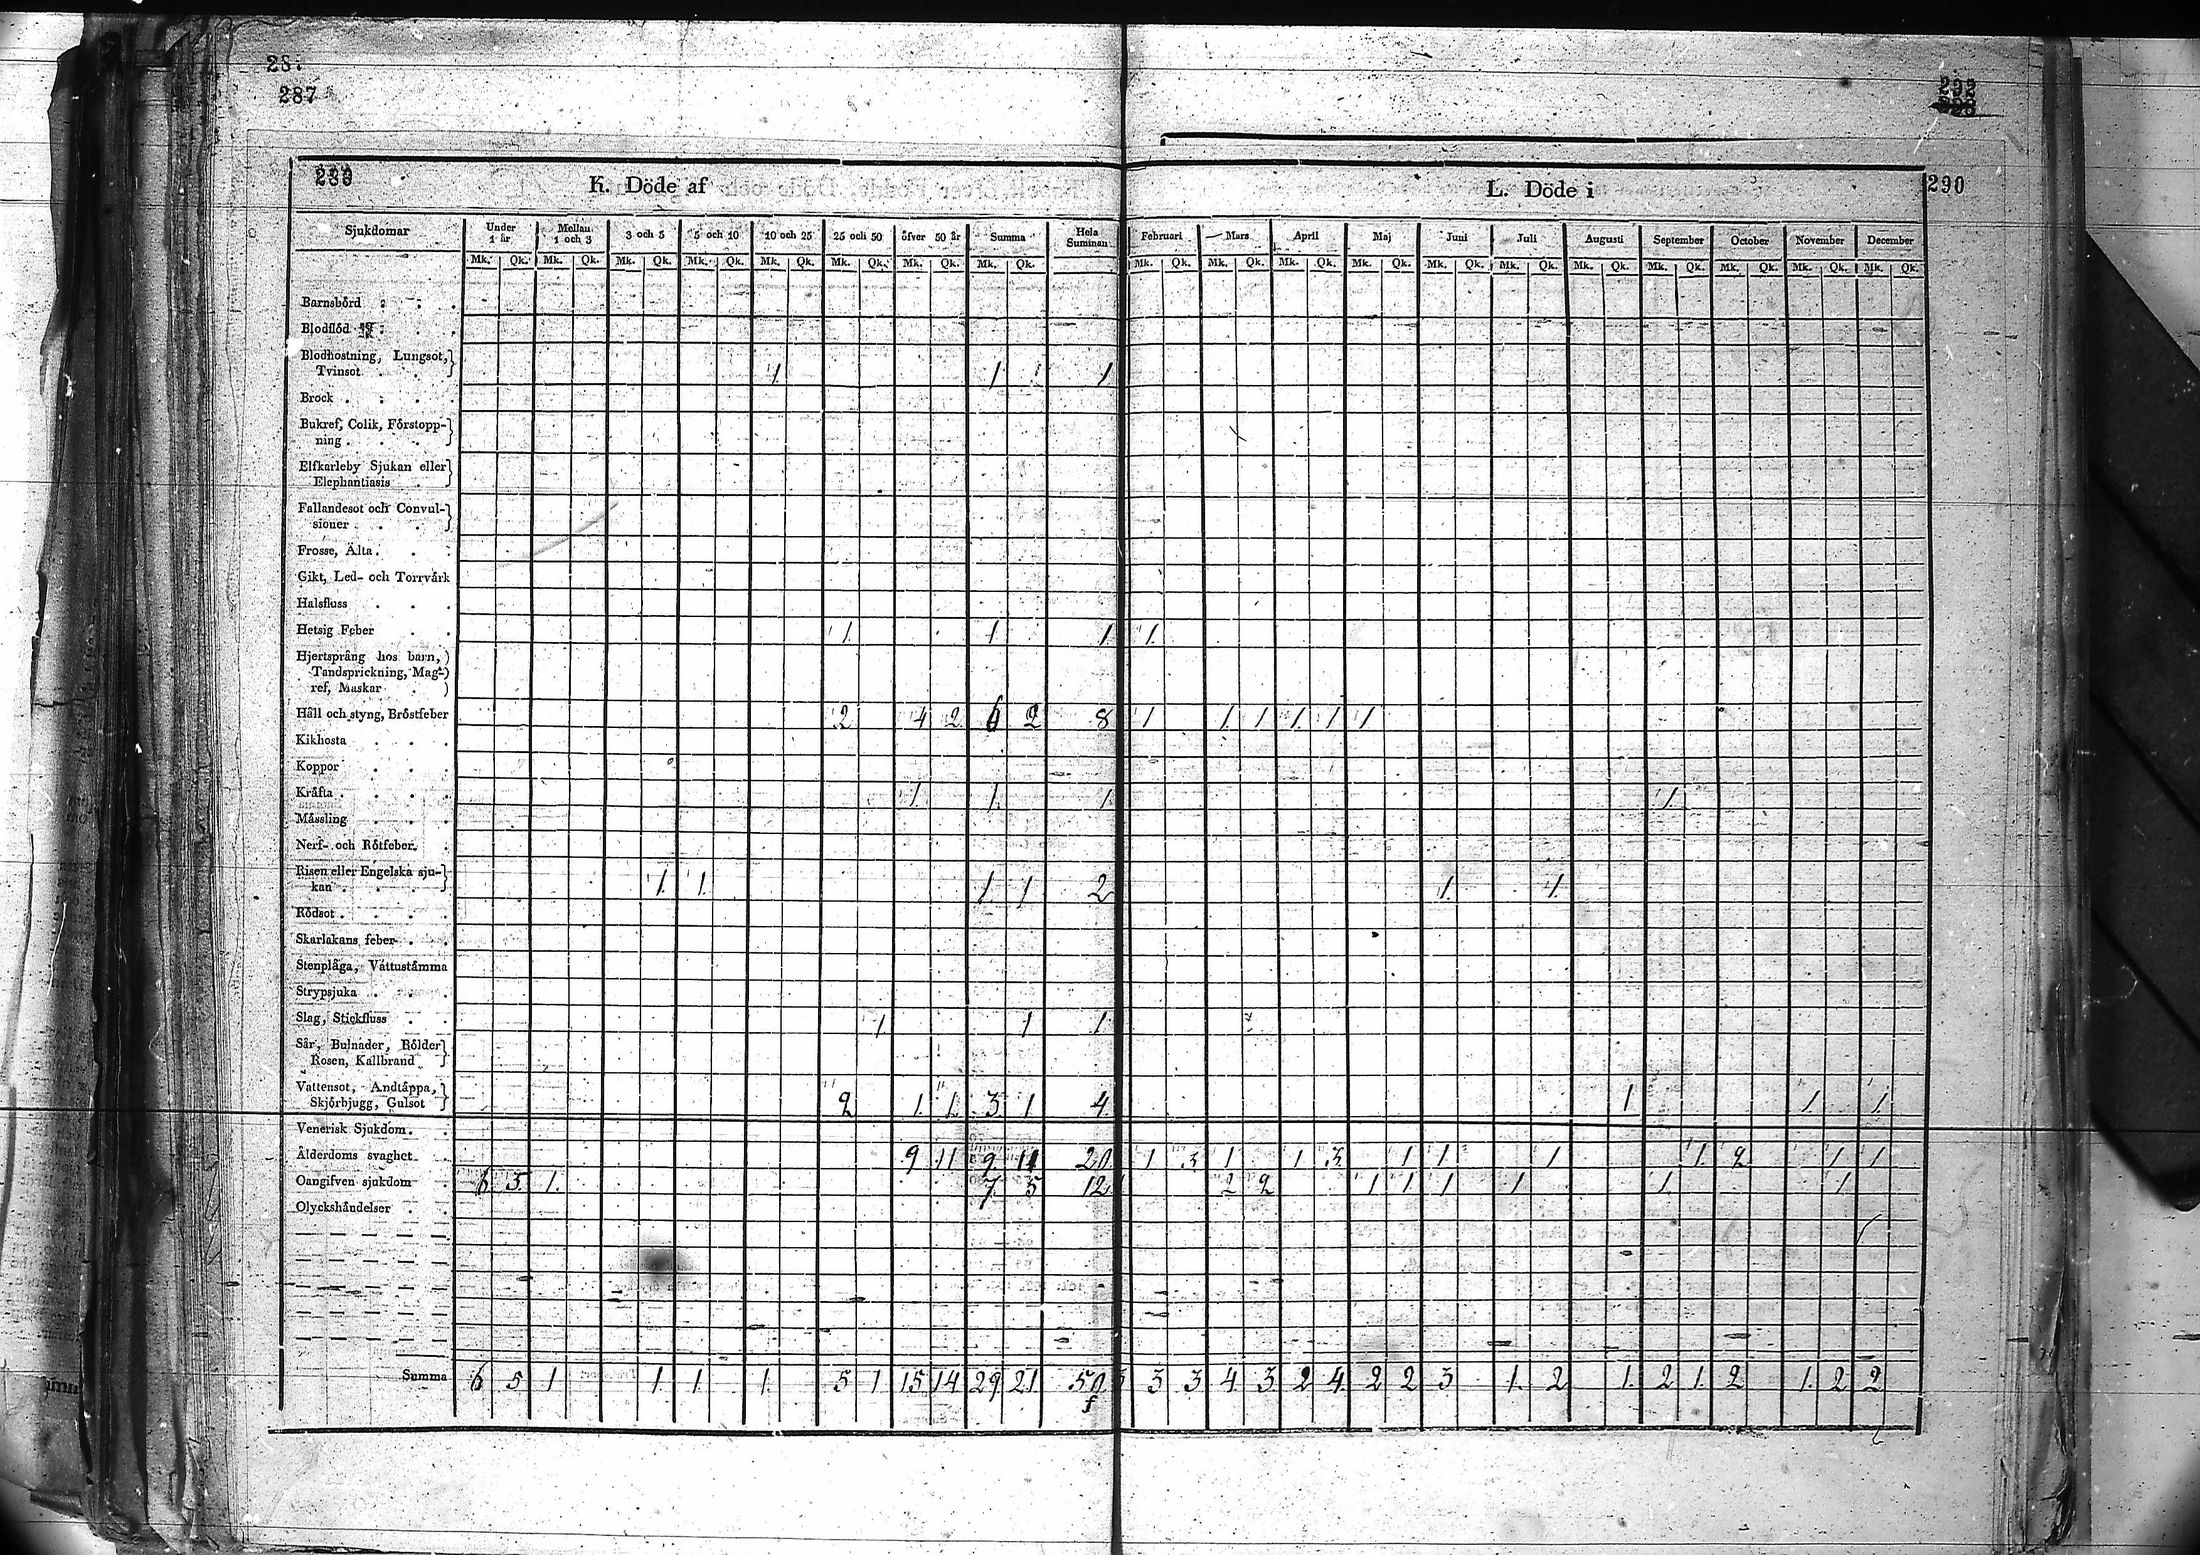 287
293
289
K. Döde af
L. Döde i
290
Sjukdomar Under 1 år Mellan 1 och 3 3 och 5 5 och 10 10 och 25 25 och 50 öfver 50 år Summa Hela Summan Februari Mars April Maj Juni Juli Augusti September October November December
Mk. Qk. Mk. Qk. Mk. Qk. Mk. Qk. Mk. Qk. Mk. Qk. Mk. Qk. Mk. Qk. Mk. Qk. Mk. Qk. Mk. Qk. Mk. Qk. Mk. Qk. Mk. Qk. Mk. Qk. Mk. Qk. Mk. Qk. Mk. Qk. Mk. Qk.
Barnsbörd
Blodflöd
Blodhostning, Lungsot,
Tvinsot 1. 1 1
Brock
Bukref, Colik, Förstopp-
ning
Elfkarleby Sjukan eller
Elephantiasis
Fallandesot och Convul-
sioner
Frosse, Älta
Gikt, Led- och Torrvärk
Halsfluss
Hetsig Feber 1. 1 1 1.
Hjertsprång hos barn,
Tandsprickning, Mag-
ref, Maskar
Håll och styng, Bröstfeber 2 4 2 6 2 8 1 1 1 1 1 1
Kikhosta
Koppor
Kräfta 1 1. 1 1.
Mässling
Nerf- och Rötfeber
Risen eller Engelska sju-
kan 1. 1 1 1 2 1. 1.
Rödsot
Skarlakans feber
Stenplåga, Vattustämma
Strypsjuka
Slag, Stickfluss 1 1 1
Sår, Bulnader, Bölder
Rosen, Kallbrand
Vattensot, Andtäppa,
Skjörbjugg, Gulsot 2 1. 1 3 1 4. 1 1. 1.
Venerisk Sjukdom
Ålderdoms svaghet 9 11 9 11 20 1 3 1 1 3 1 1 1 1. 2 1 1
Oangifven sjukdom 6 5. 1. 7 5 12 2 2 1 1 1 1 1. 1
Olyckshändelser
Summa 6 5 1 1 1. 1. 5 1 15 14 29 21. 50 3 3 4. 3. 2 4. 2 2 3 1. 2 1. 2 1. 2 1. 2 2